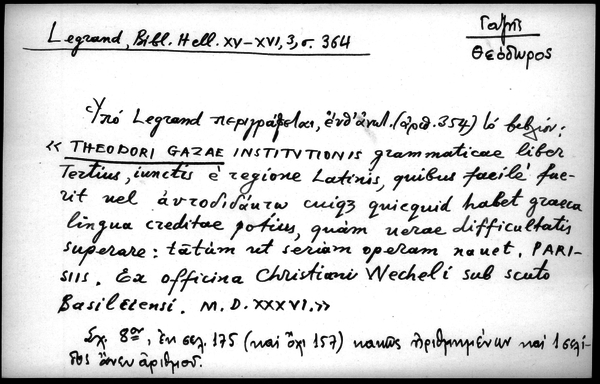 Legrand, Bibl. Hell. XV-XVI, 3, σ. 364
Γαζῆς
Θεόδωρος
Ὑπό Legrand περιγράφεται, ἐνθ' ἀνωτ. (ἀριθ. 354) τό βιβλίον:
« THEODORI GAZAE INSTITVTIONIS grammaticae liber
Tertius, iunctis è regione Latinis, quibus facilè fue-
rit uel ἀυτοδιδάκτω cuiqȝ quicquid habet graeca
lingua creditae potius, quàm uerae difficultatis
superare: tātùm ut seriam operam nauet. PARI-
SIIS. Ex officina Christiani Wecheli sub scuto
Basileiensi. M. D. XXXVI.»
Σχ. 8ον, ἐκ σελ. 175 (καί ὄχι 157) κακῶς ἠριθμημένων καί 1 σελί-
δος ἄνευ ἀριθμοῦ.